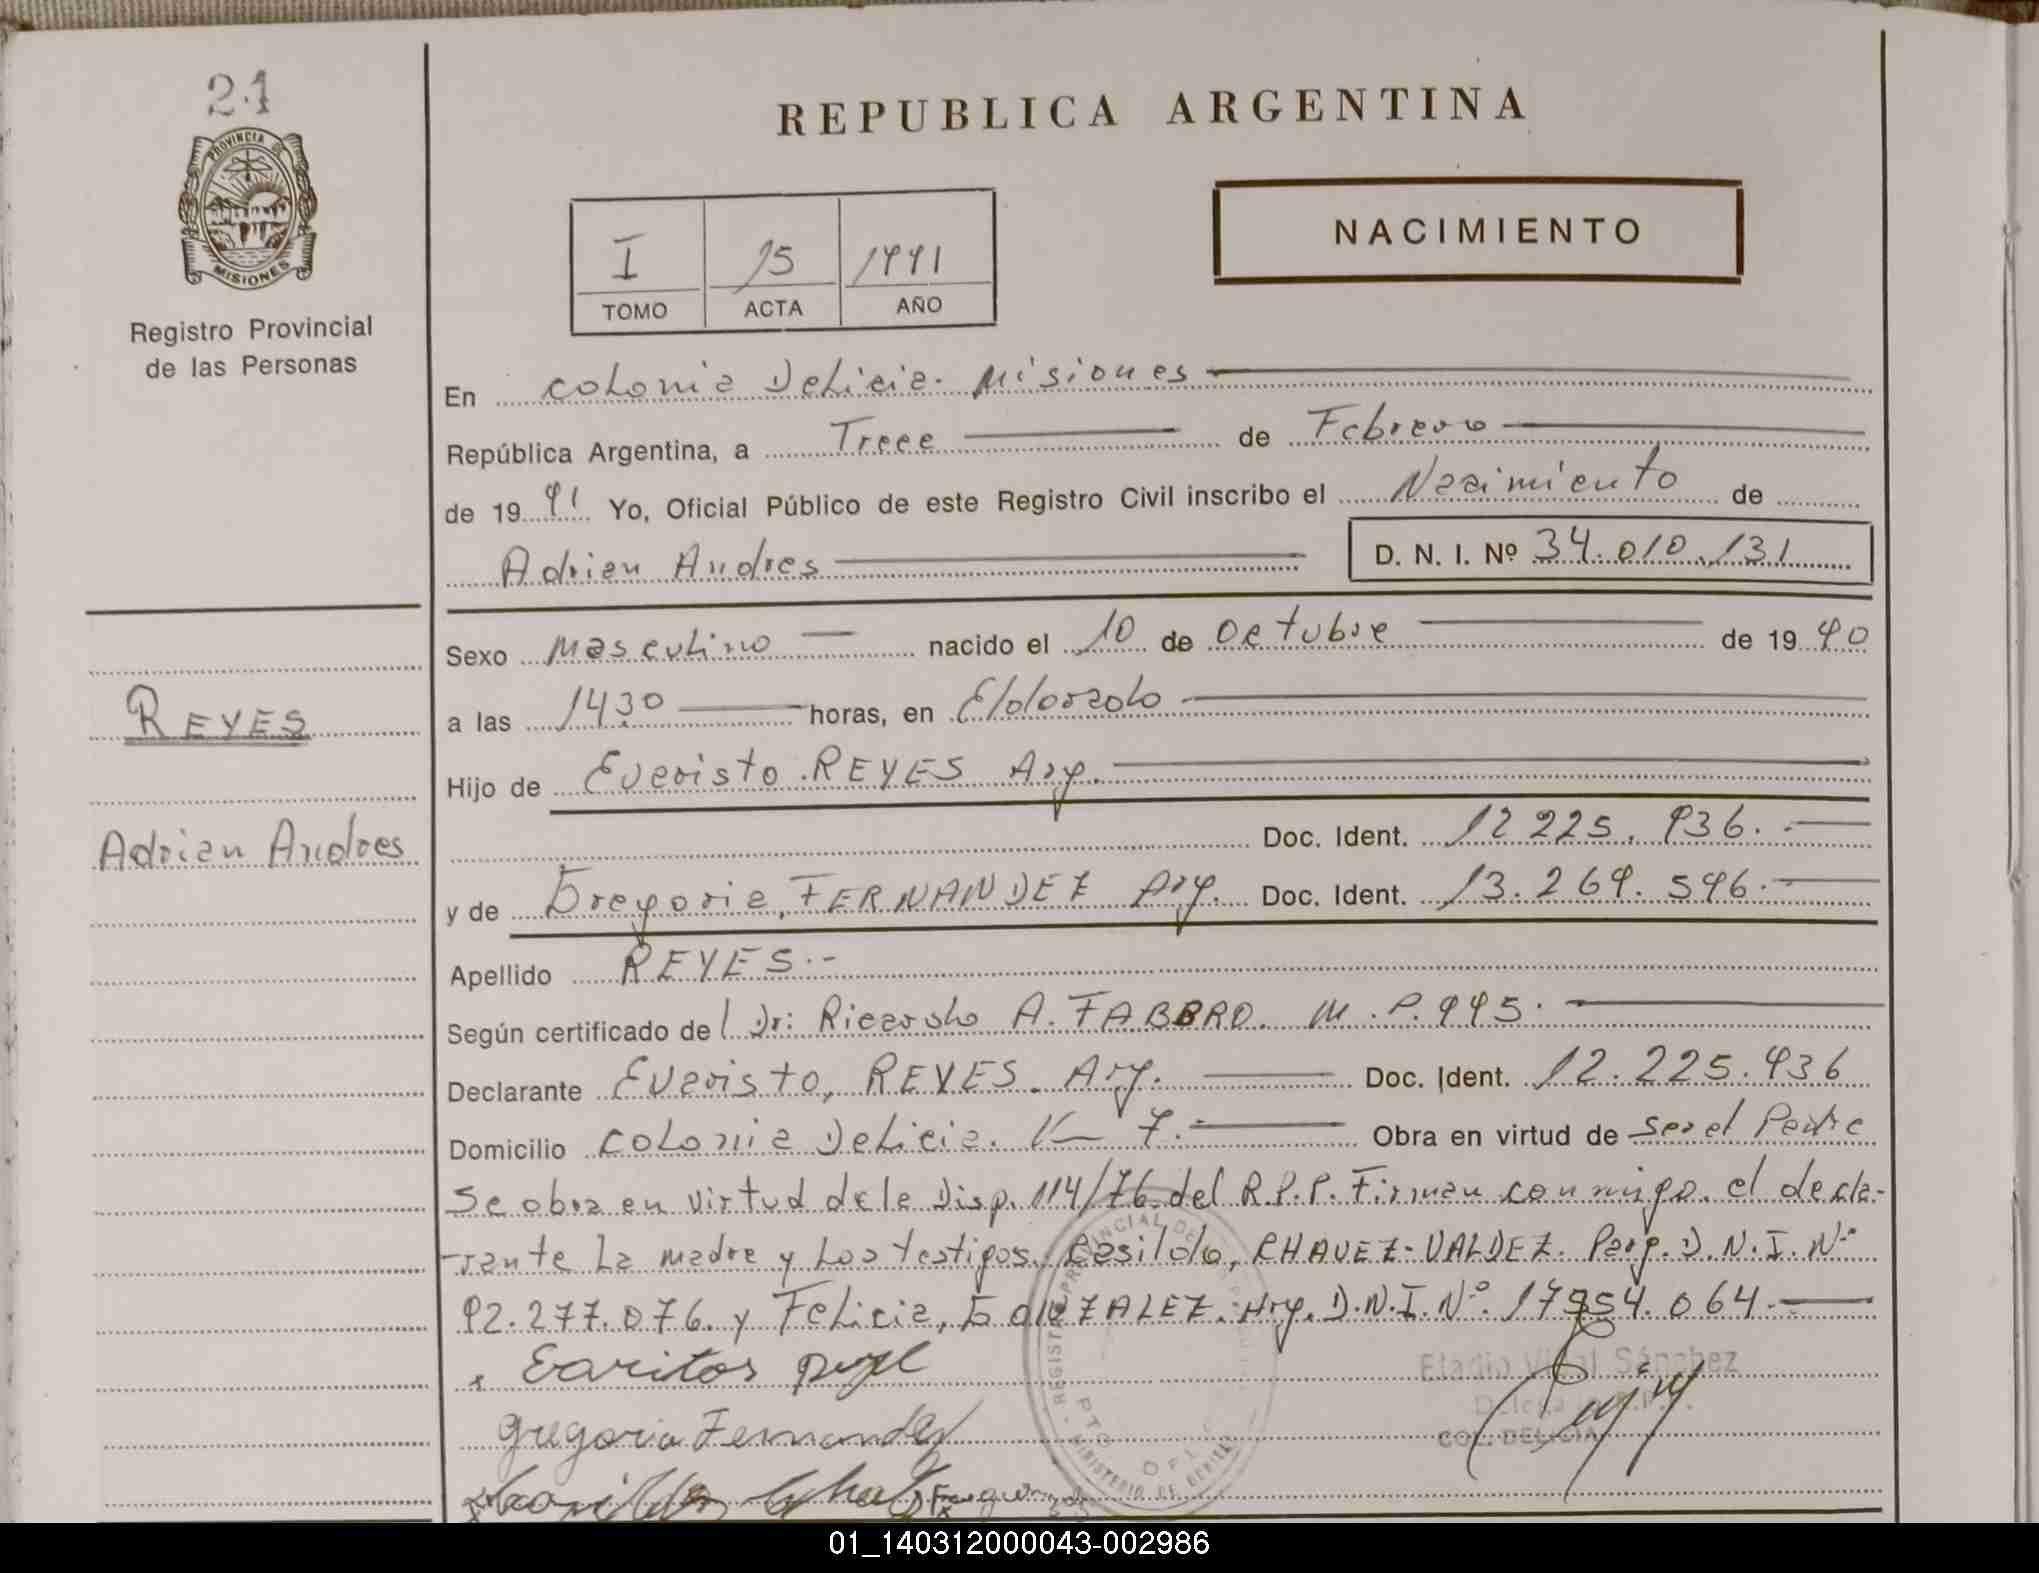 21
PROVINCIA DE
MISIONES
Registro Provincial
de las Personas
REPUBLICA ARGENTINA
NACIMIENTO
I 15 1991
TOMO ACTA AÑO
En Colonia Delicia. Misiones
República Argentina, a Trece de Febrero
de 19 91 Yo, Oficial Público de este Registro Civil inscribo el Nacimiento de
Adrian Andres D. N. I. Nº 34.010.131
Sexo Masculino nacido el 10 de Octubre de 19 90
a las 14,30 horas, en Eldorado
REYES
Hijo de Evaristo REYES Arg.
Adrian Andres
Doc. Ident. 12.225.936.
y de Gregoria, FERNANDEZ Arg. Doc. Ident. 13.269.596.
Apellido REYES.-
Según certificado del Dr: Ricardo A. FABBRO. M.P. 995.
Declarante Evaristo, REYES. Arg. Doc. Ident. 12.225.936
Domicilio Colonia Delicia. K 7. Obra en virtud de ser el Padre
Se obra en virtud de la Disp. 114/76 del R.P.P. Firman conmigo, el decla-
rante la madre y los testigos. Casildo, CHAVEZ-VALDEZ. Parg. D.N.I. Nº
92.277.076. y Felicia, GONZALEZ. Arg. D.N.I. Nº. 17.954.064.
Eladio Vidal Sánchez
Gregoria Fernandez
COL. DELICIA
01_140312000043-002986